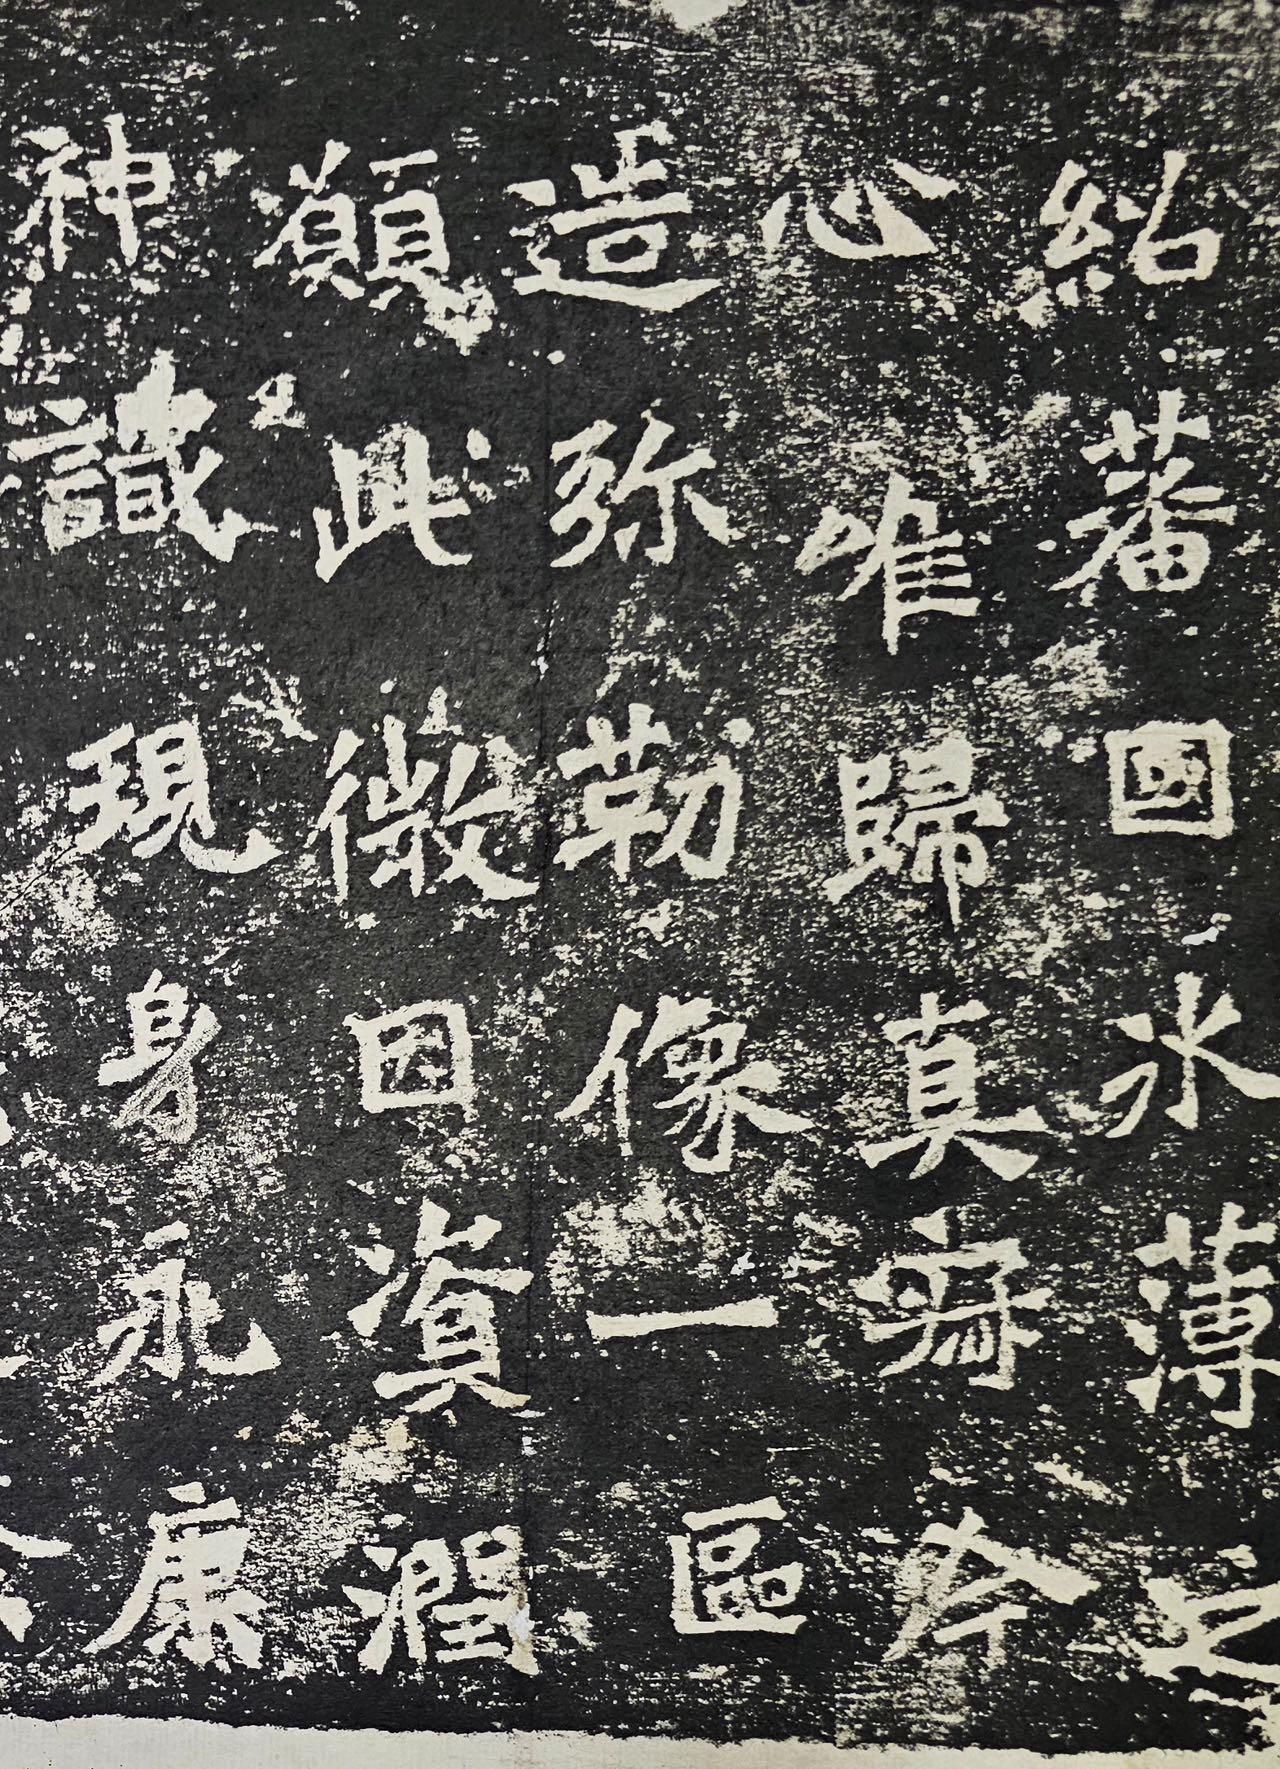 紹蕃國氷薄之
心唯歸真寂今
造弥勒像一區
願此微因資潤
神識現身永康